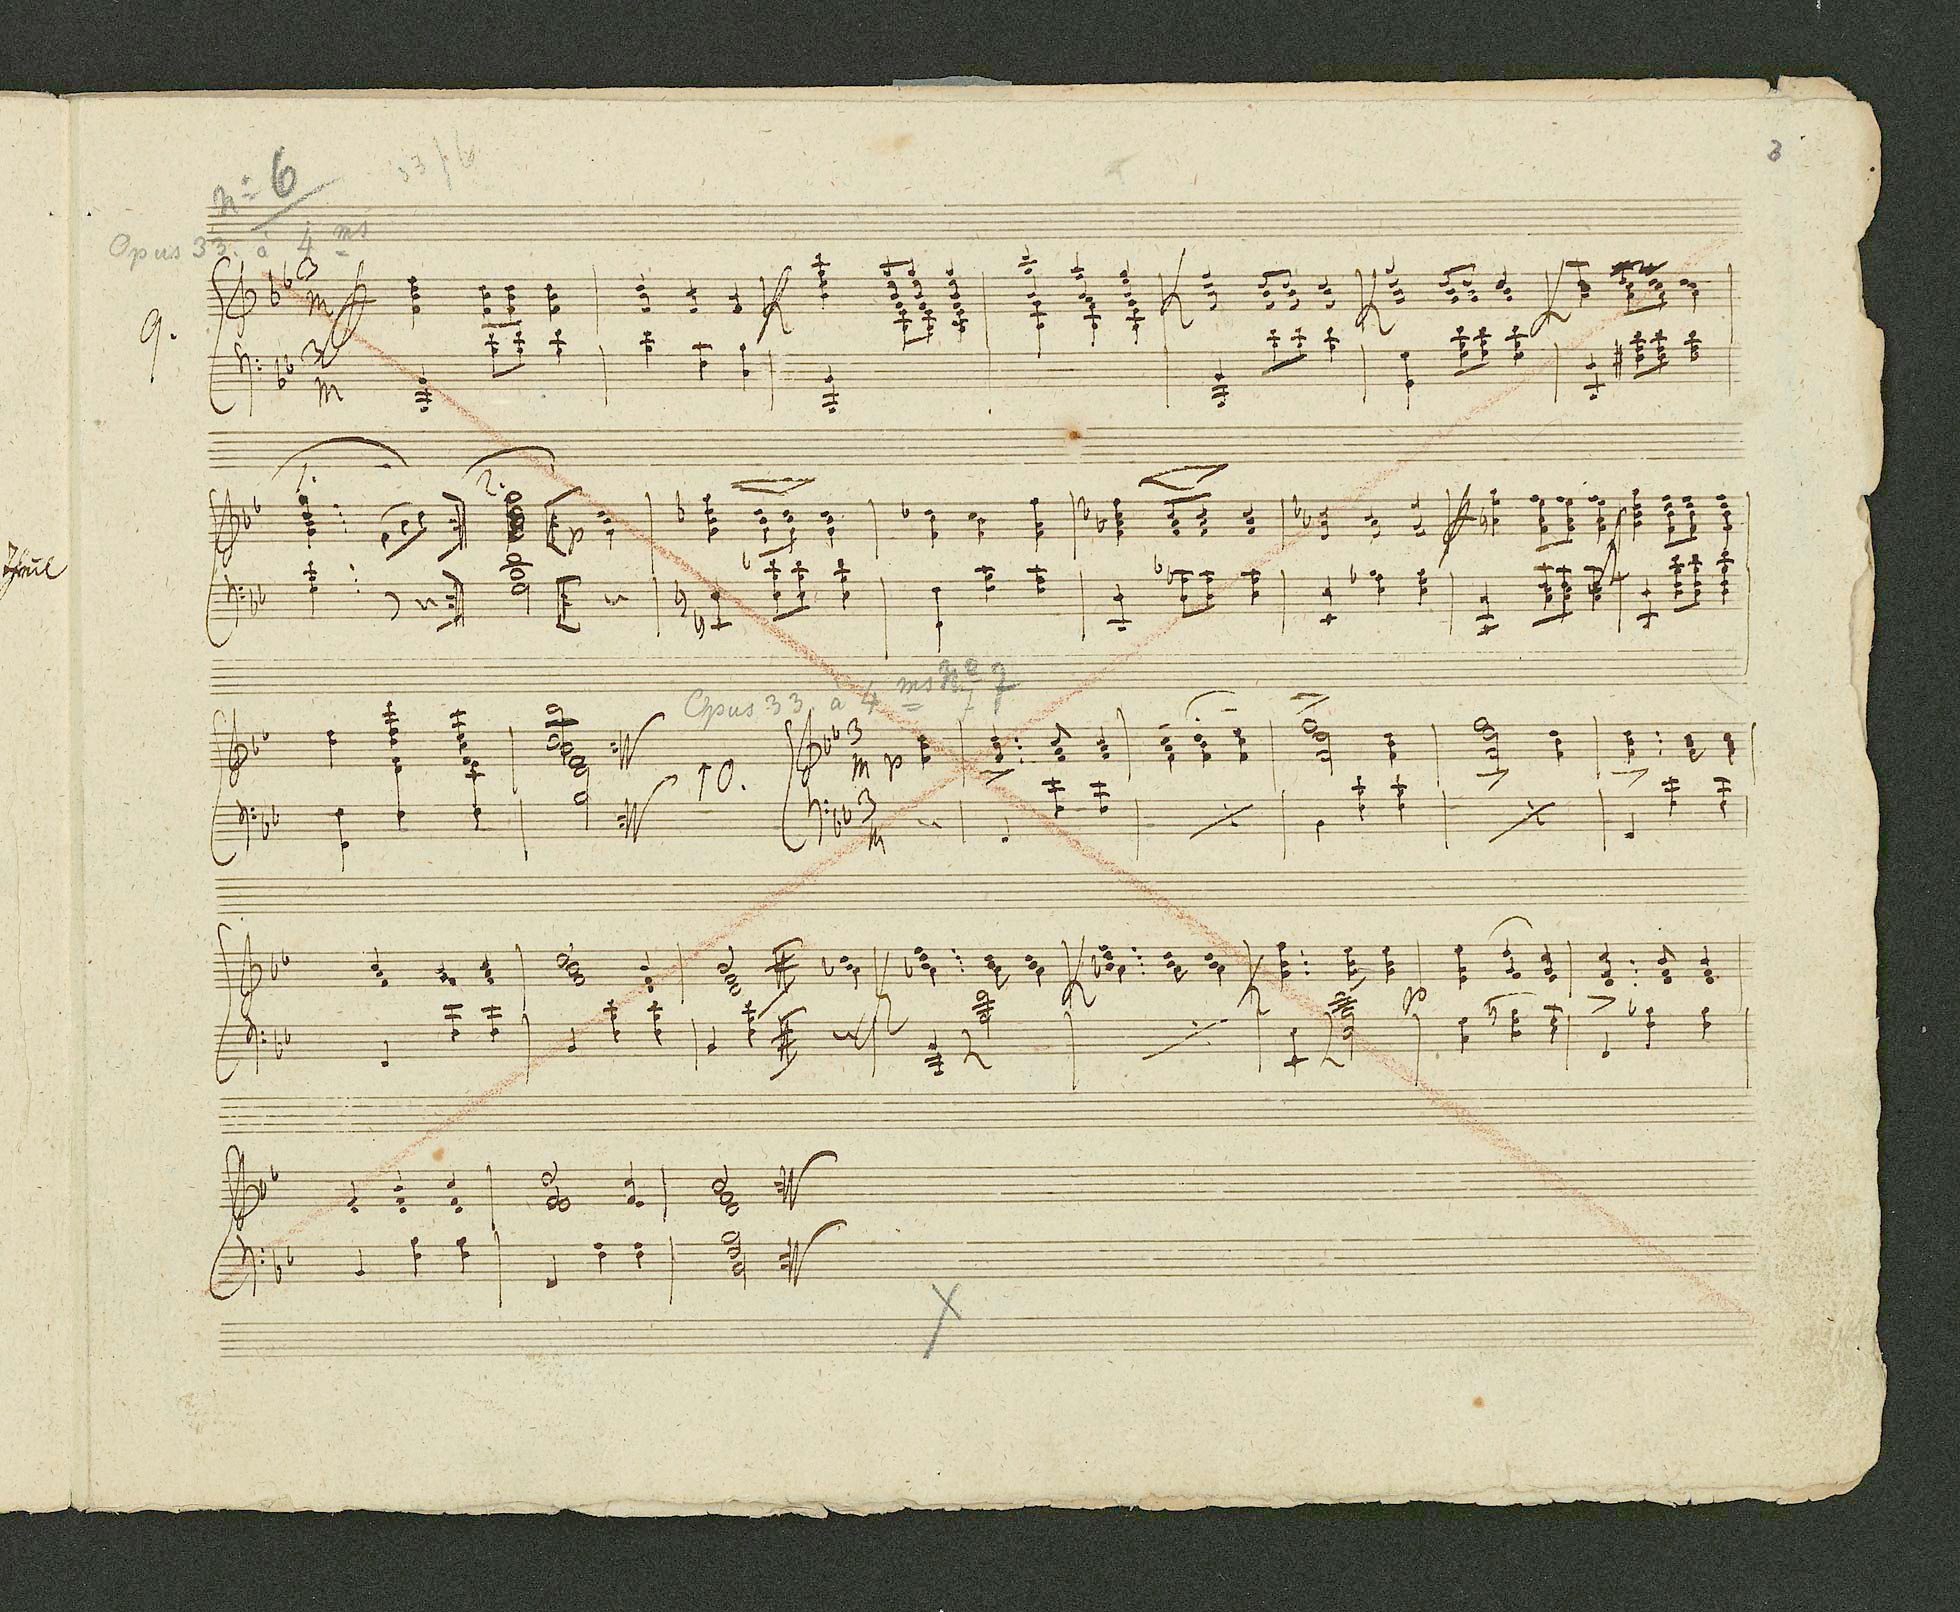 3
nº 6
33/6
Opus 33. à 4 ms
9.
3
3
1.
2.
p
Opus 33. à 4 ms Nº 7
10.
3
p
3
p